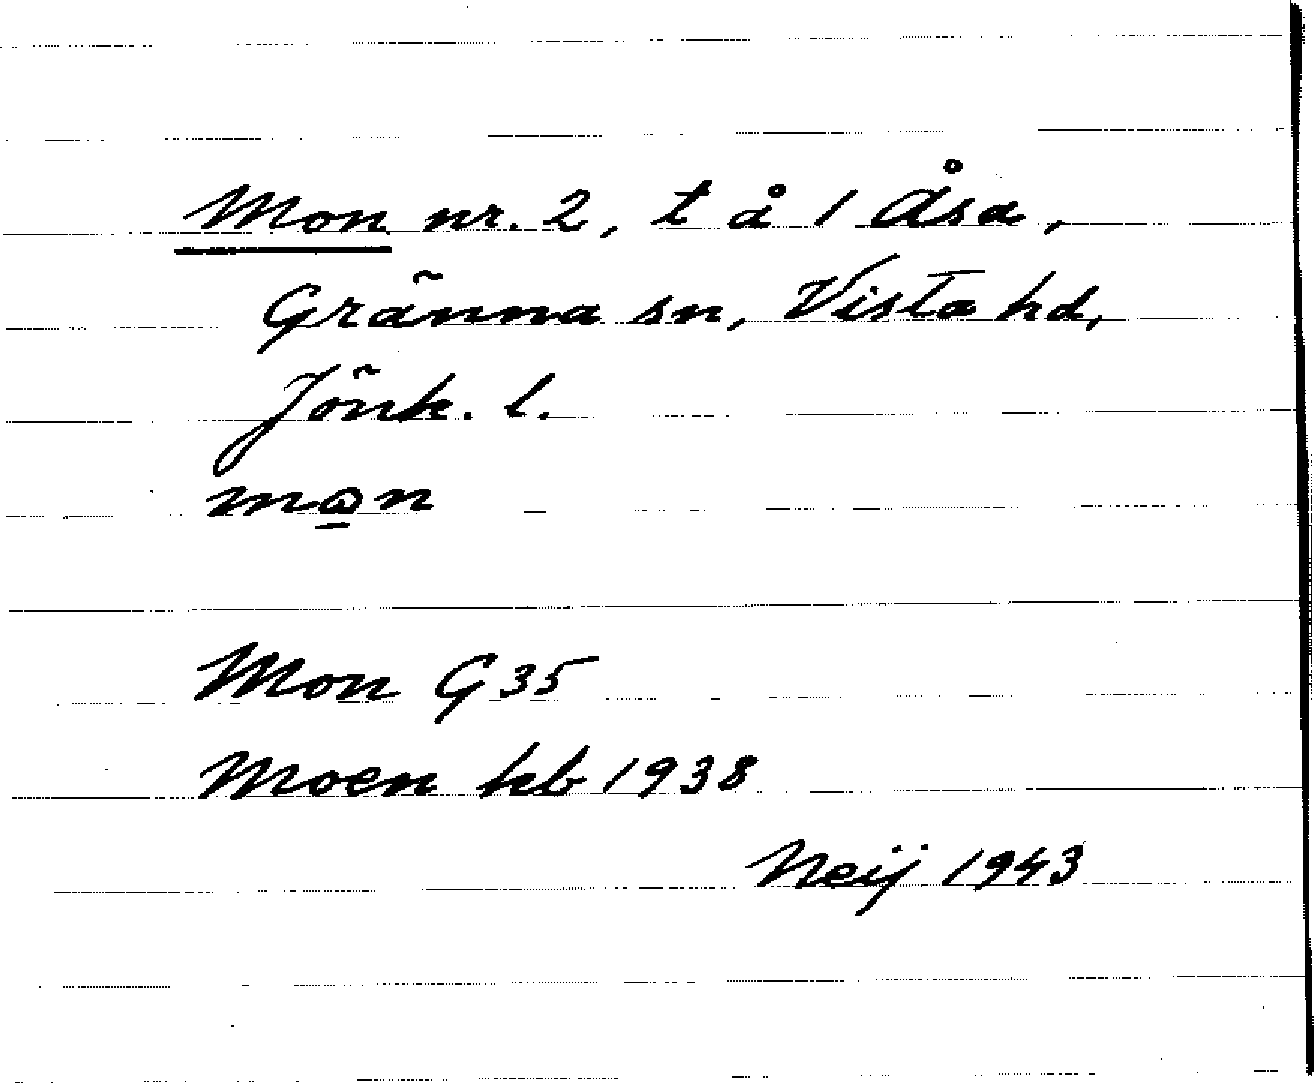 Mon nr. 2, t å 1 Åsa,
Gränna sn, Vista hd,
Jönk. l.
Mon G 35
Moen kb 1938
Neij 1943